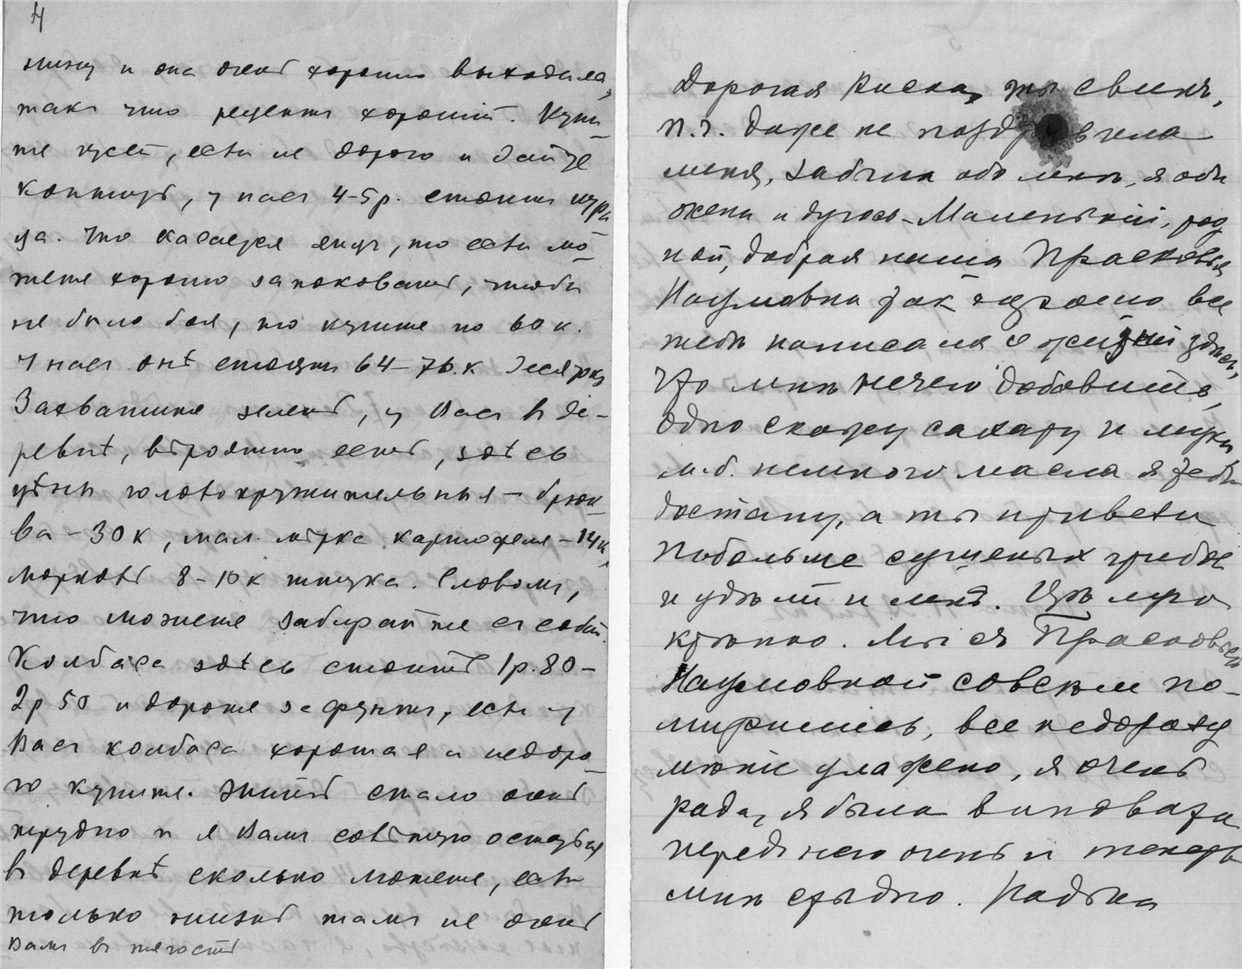 4
нину и она очень хорошо выходила,
такъ что рецептъ хорошій. Купи-
те гусей, если не дорого и дайте
коптить, у насъ 4-5 р. стоитъ кури
ца. Что касается яицъ, то если мо-
жете хорошо запаковать, чтобы
не было боя, то купите по 60 к.
У насъ онѣ стоятъ 64-76 к. десятокъ
Захватите зелень, у Васъ въ де-
ревнѣ, вѣроятно есть, здѣсь
цѣны головокружительныя - брюк-
ва - 30 к, мал. мѣрка картофеля - 14 к,
морковь 8-10 к штука. Словомъ,
что можете забирайте съ собой.
Колбаса здѣсь стоитъ 1 р. 80-
2 р 50 и дороже за фунтъ, если у
Васъ колбаса хорошая и недоро-
го купите. Жить стало очень
трудно и я Вамъ совѣтую оставаться
въ деревнѣ сколько можете, если
только жизнь тамъ не очень
Вамъ въ тягость
Дорогая Киска, ты свинья,
п.ч. даже не поздравила
меня, забыла обо мнѣ, я оби
жена и дуюсь. Маленькій, род
ной, добрая наша Прасковья
Наумовна такъ хорошо все
тебѣ написала о жизни здѣсь,
что мнѣ нечего добавить,
одно скажу сахару и муки
м.б. немного масла я тебѣ
достану, а ты привези
побольше сушеныхъ грибовъ
и
крѣпко. Мы съ Прасковьей
Наумовной совсѣмъ по-
мирились, все недоразу
мѣніе улажено, я очень
рада, я была виновата
передъ нею очень и теперь
мнѣ стыдно. Надька